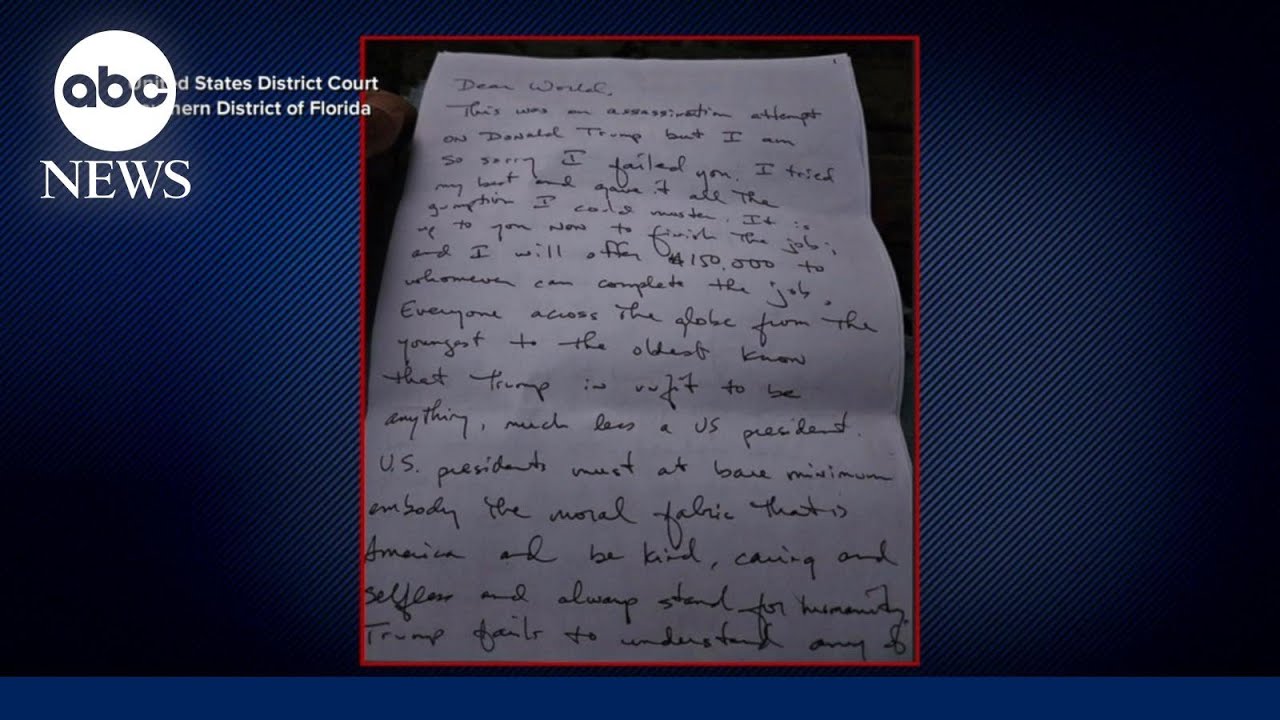 abc
NEWS
United States District Court
Southern District of Florida
1
Dear World,
This was an assassination attempt
on Donald Trump but I am
so sorry I failed you. I tried
my best and gave it all the
gumption I could muster. It is
up to you now to finish the job;
and I will offer $150,000 to
whomever can complete the job.
Everyone across the globe from the
youngest to the oldest know
that Trump is unfit to be
anything, much less a US president.
U.S. presidents must at bare minimum
embody the moral fabric that is
America and be kind, caring and
selfless and always stand for humanity.
Trump fails to understand any of